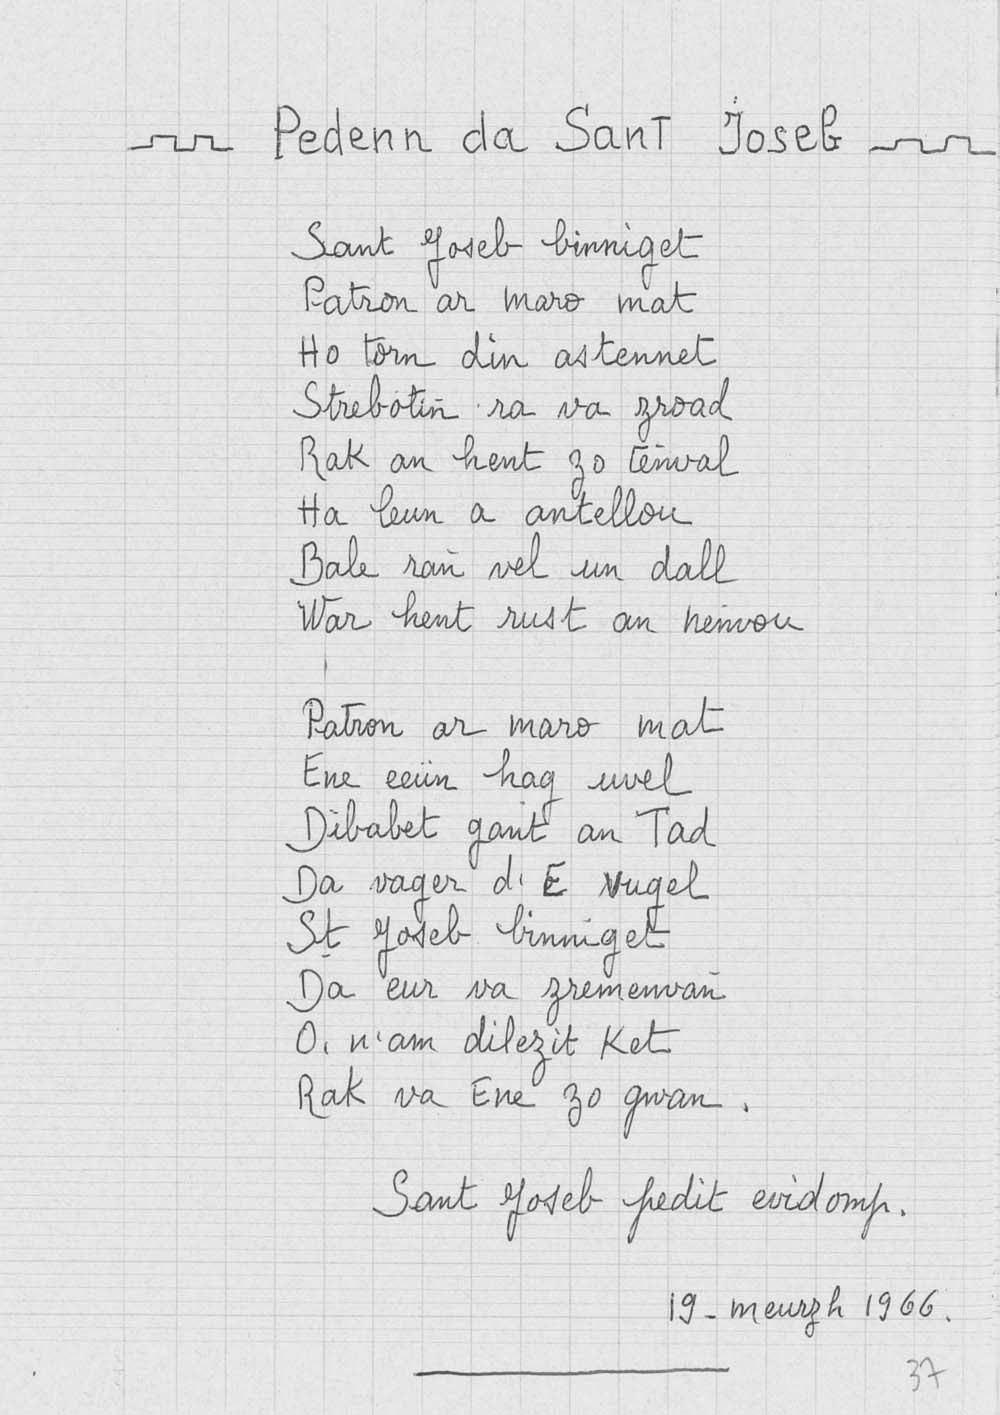 Pedenn da Sant Joseb
Sant Joseb binniget
Patron ar maro mat
Ho torn din astennet
Strebotiñ ra va zroad
Rak an hent zo teñval
Ha leun a antellou
Bale rañ vel un dall
War hent rust an neñvou
Patron ar maro mat
Ene eeün hag uvel
Dibabet gant an Tad
Da vager d'E Vugel
St Joseb binniget
Da eur va zremenvañ
O, n'am dilezit ket
Rak va Ene zo gwan.
Sant Joseb pedit evidomp.
19 - meurzh 1966.
37